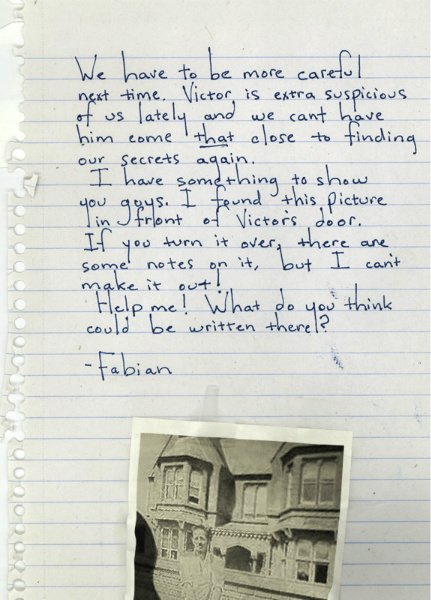 We have to be more careful
next time. Victor is extra suspicious
of us lately and we cant have
him come that close to finding
our secrets again.
I have something to show
you guys. I found this picture
in front of Victor's door.
If you turn it over, there are
some notes on it, but I can't
make it out!
Help me! What do you think
could be written there!?
-Fabian